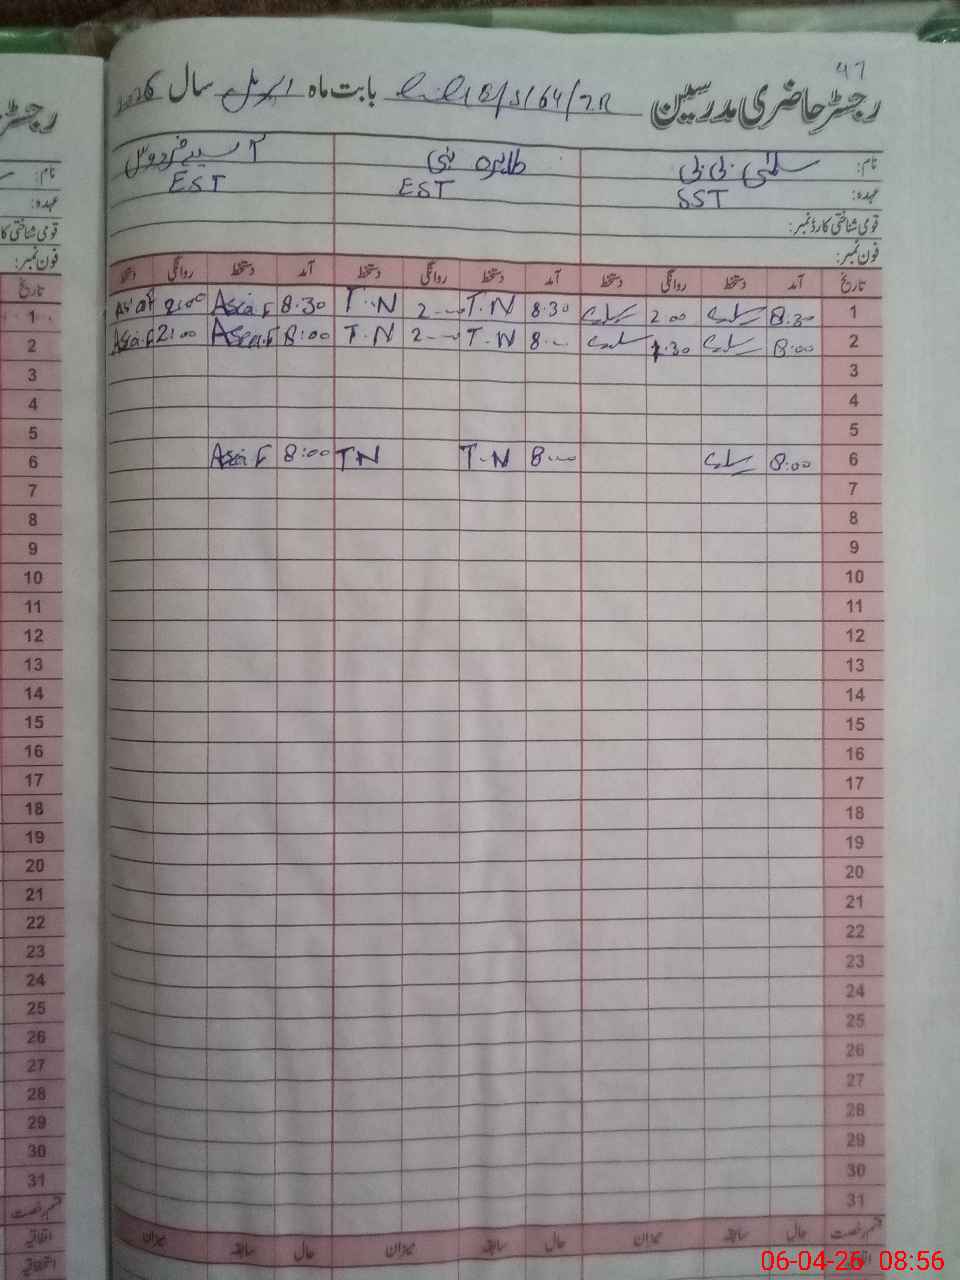 47
رجسٹر حاضری مدرسین 64/7R بابت ماہ اپریل سال 2026
نام: سلمٰی بی بی طاہرہ نبی آسیہ فردوس
عہدہ: SST EST EST
قومی شناختی کارڈ نمبر:
فون نمبر:
تاریخ آمد دستخط روانگی دستخط آمد دستخط روانگی دستخط آمد دستخط روانگی دستخط
1 8.30 2.00 8.30 T.N 2 T.N 8.30 Asia F 2:00 Asia F
2 8:00 1.30 8 T.N 2 T.N 8:00 Asia.F 2:00 Asia.F
3
4
5
6 8:00 8 T.N TN 8:00 Asia F
7
8
9
10
11
12
13
14
15
16
17
18
19
20
21
22
23
24
25
26
27
28
29
30
31
قسم رخصت حال سابقہ میزان حال سابقہ میزان حال سابقہ میزان
اتفاقیہ
06-04-26 08:56
رجسٹر
نام:
عہدہ:
قومی شناختی کا
فون نمبر:
تاریخ
1
2
3
4
5
6
7
8
9
10
11
12
13
14
15
16
17
18
19
20
21
22
23
24
25
26
27
28
29
30
31
قسم رخصت
اتفاقیہ